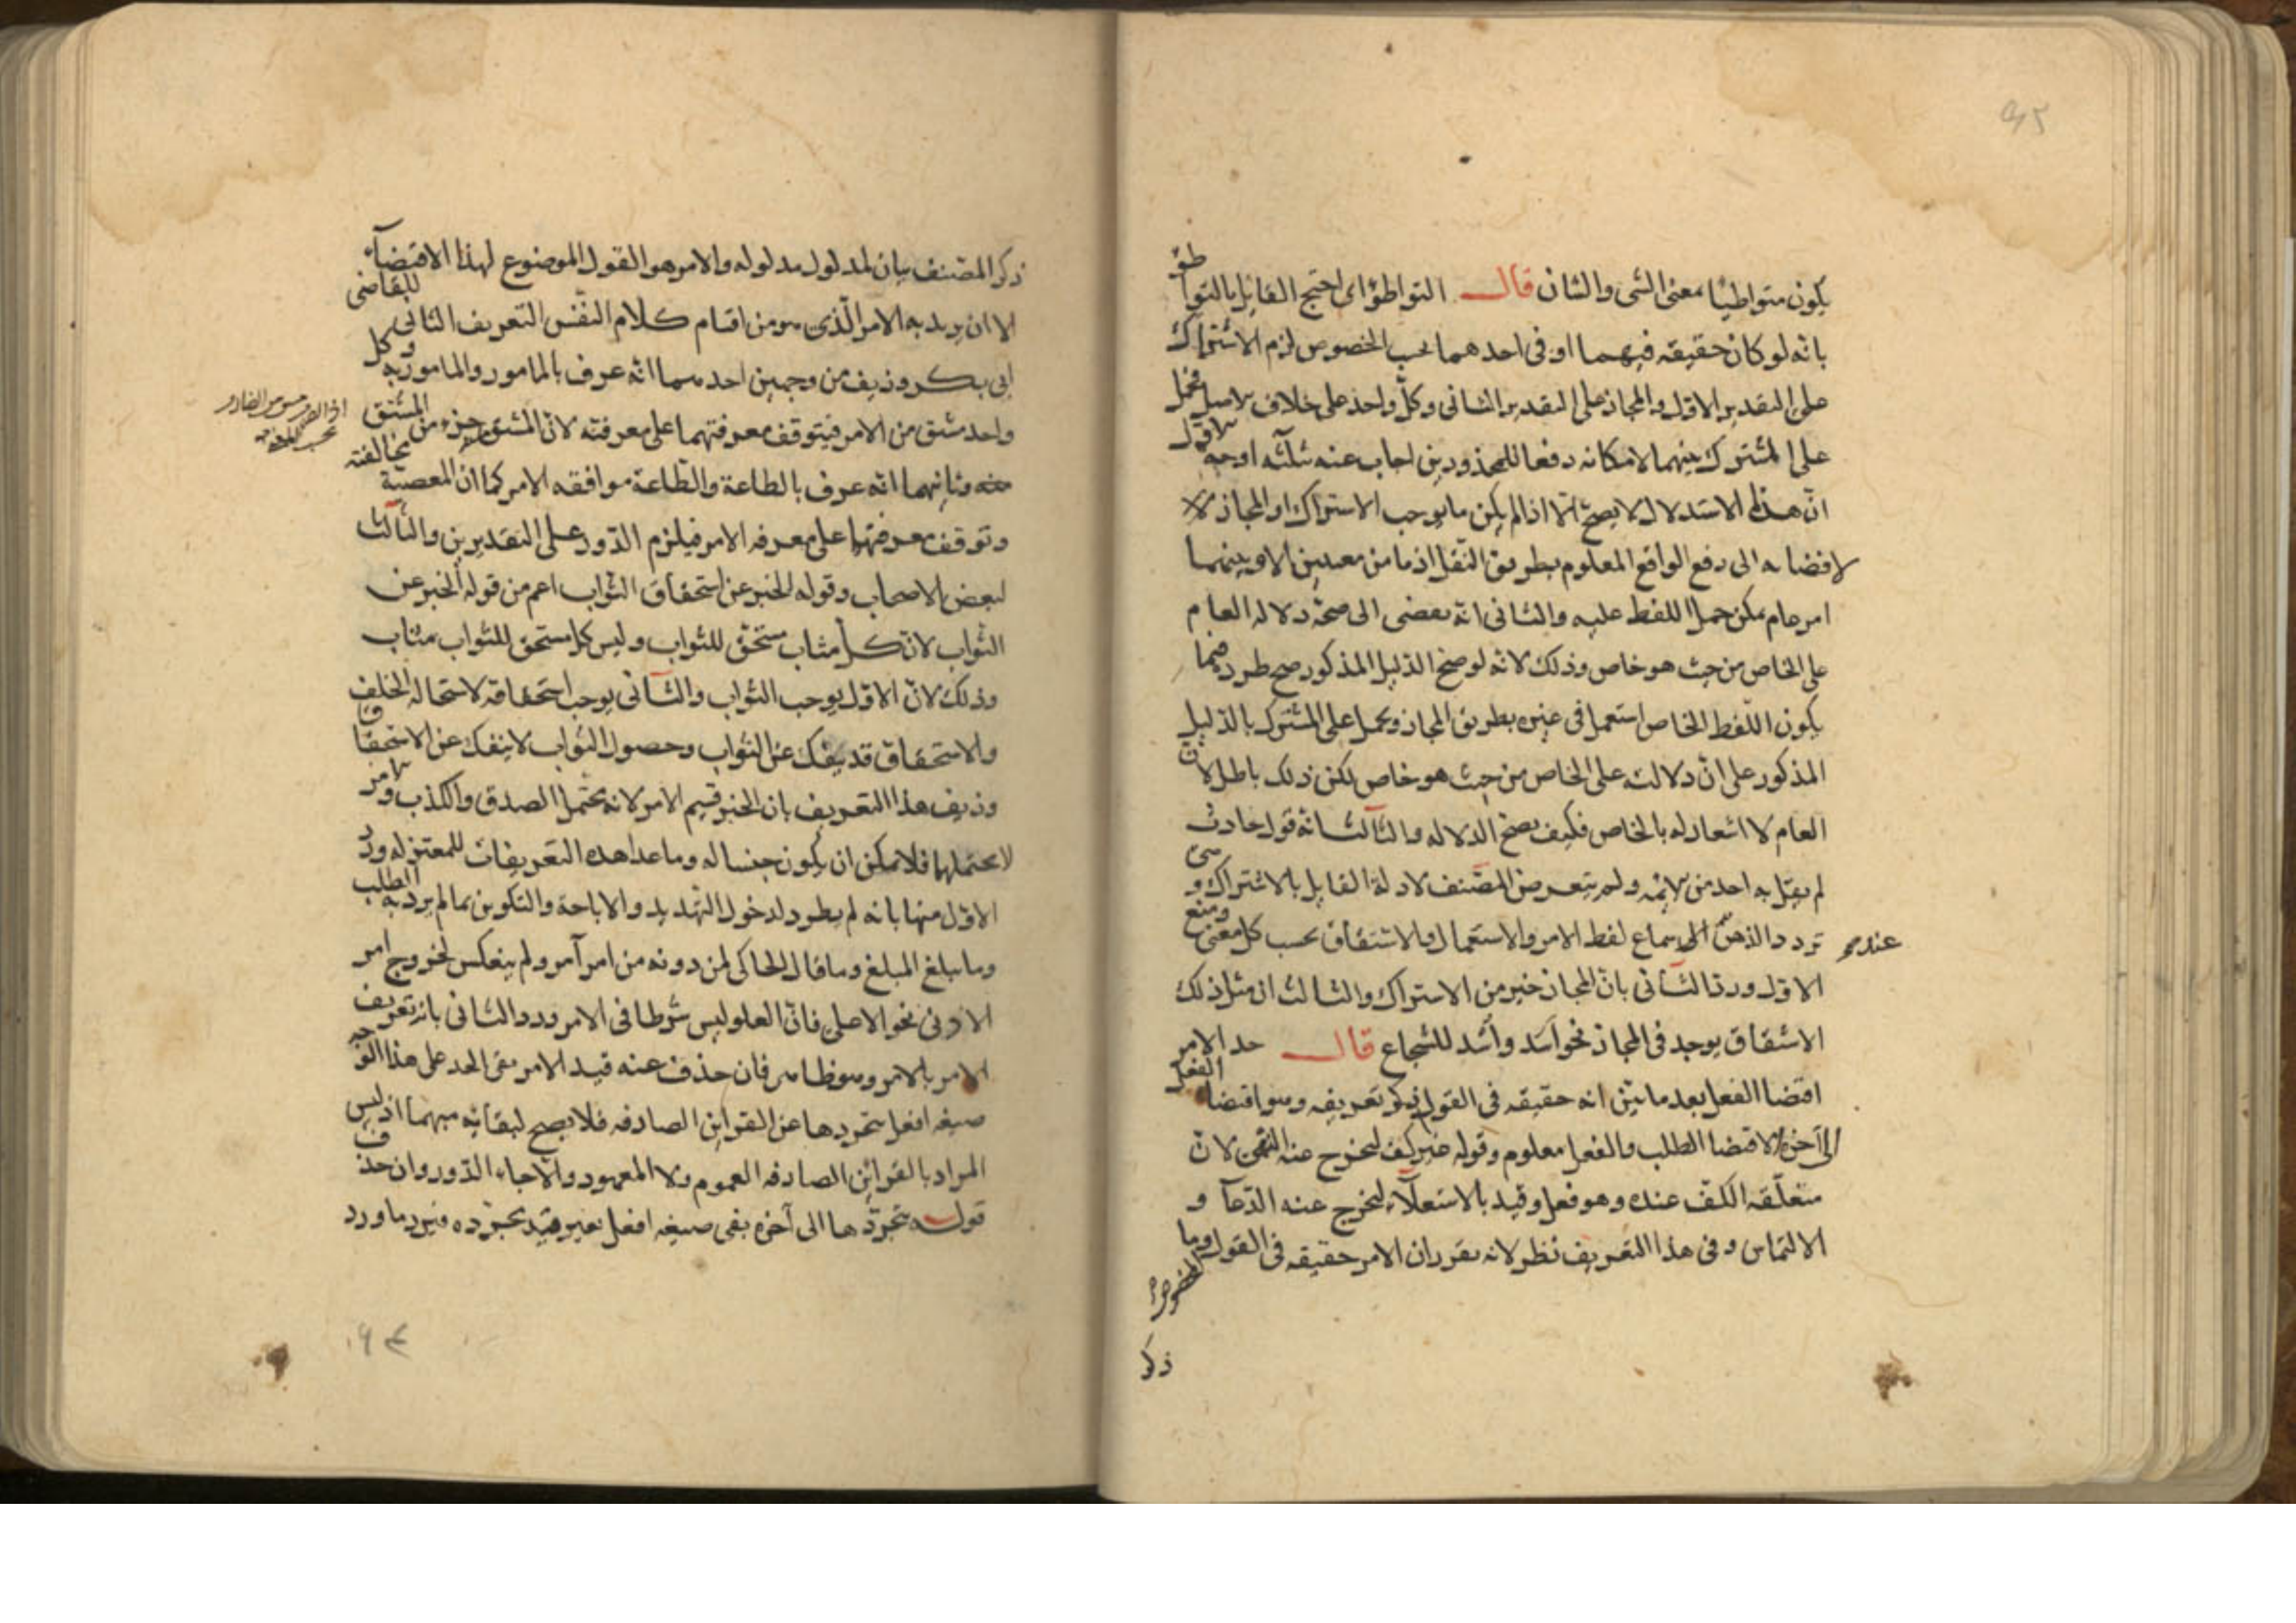 يكون متواطيا بمعنى الشى والشان قال التواطؤ اى احتج القايل بالتواطؤ
بانه لو كان حقيقه فيهما او فى احدهما بحسب الخصوص لزم الاشتراك
على التقدير الاول والمجاز على التقدير الثانى وكل واحد على خلاف الاصل فيحمل
على المشترك بينهما لامكانه دفعا للمحذورين اجاب عنه بثلثه اوجه الاول
ان هذا الاستدلال لا يصح الا اذا لم يكن ما يوجب الاشتراك او المجاز والا
لافضا به الى رفع الواقع المعلوم بطريق النقل اذ ما من معنيين الا وبينهما
امر عام يمكن حمل اللفظ عليه والثانى انه يفضى الى صحة دلاله العام
على الخاص من حيث هو خاص وذلك لانه لو صح الدليل المذكور صح طرده فيما
يكون اللفظ الخاص استعمل فى غيره بطريق المجاز ويحمل على المشترك بالدليل
المذكور على ان دلالته على الخاص من حيث هو خاص لكن ذلك باطل لان
العام لا اشعار له بالخاص فكيف يصح الدلاله والثالث انه قول حادث
لم يقل به احد من الايمه ولم يتعرض المصنف لادلة القايل بالاشتراك وهى
تردد الذهن الى سماع لفظ الامر والاستعمال والاشتقاق بحسب كل معنى ومنع
عند
الاول ورد الثانى بان المجاز خير من الاشتراك والثالث ان مثل ذلك
الاشتقاق يوجد فى المجاز نحو اسد وأسد للشجاع قال حد الامر
اقتضا الفعل بعد ما تبين انه حقيقه فى القول ذكر تعريفه وهو اقتضاء الفعل
الى آخره الاقتضا الطلب والفعل معلوم وقوله غير كف ليخرج عنه النهى لان
متعلقه الكف عنده وهو فعل وقيد بالاستعلاء ليخرج عنه الدعآ و
الالتماس وفى هذا التعريف نظر لانه تقرر ان الامر حقيقه فى القول المخصوص وما
ذكر
ذكر المصنف بيان لمدلول مدلوله والامر هو القول الموضوع لهذا الاقتضآء
الا ان يريد به الامر الذى هو من اقسام كلام النفس التعريف الثانى للقاضى
ابى بكر وزيف من وجهين احدهما انه عرف بالمامور والمامور به وكل
واحد مشتق من الامر فيتوقف معرفتهما على معرفته لان المشتق منه جزء من المشتق
منه وثانيهما انه عرف بالطاعة والطاعة موافقه الامر كما ان المعصية مخالفته
وتوقف معرفتها على معرفه الامر فيلزم الدور على التقديرين والثالث
لبعض الاصحاب وقوله الخبر عن استحقاق الثواب اعم من قوله الخبر عن
الثواب لان كل مثاب مستحق للثواب وليس كل مستحق للثواب مثاب
وذلك لان الاول يوجب الثواب والثانى يوجب استحقاقه لاستحاله الخلف
والاستحقاق قد ينفك عن الثواب وحصول الثواب لا ينفك عن الاستحقاق
وزيف هذا التعريف بان الخبر قسيم الامر لانه يحتمل الصدق والكذب والامر
لا يحتملهما فلا يمكن ان يكون جنسا له وما عدا هذه التعريفات للمعتزله ورد
الاول منها بانه لم يطرد لدخول التهديد والاباحة والتكوين مما لم يرد به الطلب
وما يبلغ المبلغ وما قال الحاكى لمن دونه من امر آمر ولم ينعكس لخروج امر
الادنى نحو الاعلى فان العلو ليس شرطا فى الامر ورد الثانى بانه تعريف
الامر بالامر وهو ظاهر فان حذف عنه قيد الامر بقى الحد على هذا الوجه
صيغه افعل بتجردها عن القراين الصارفه فلا يصح لبقائه مبهما اذ ليس
المراد بالقرائن الصارفه العموم ولا المعهود والا جاء الدور وان حذف
قوله بتجردها الى آخره بقى صيغه افعل بغير قيد تجرده فيرد ما ورد